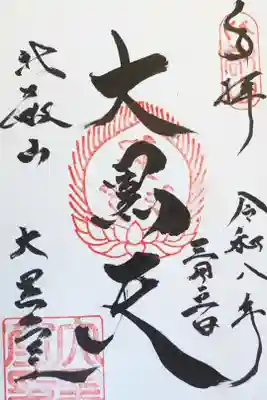 奉拝
令和八年
二月三日
大黒天
比叡山
大黒堂